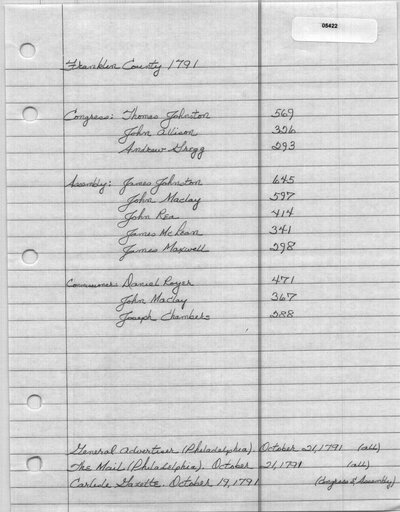 05422
Franklin County 1791
Congress: Thomas Johnston 569
John Allison 326
Andrew Gregg 293
Assembly: James Johnston 645
John Maclay 597
John Rea 414
James McLean 341
James Maxwell 298
Commissioner: Daniel Royer 471
John Maclay 367
Joseph Chambers 288
General Advertiser (Philadelphia). October 21, 1791 (all)
The Mail (Philadelphia). October 21, 1791 (all)
Carlisle Gazette. October 19, 1791 (Congress & Assembly)